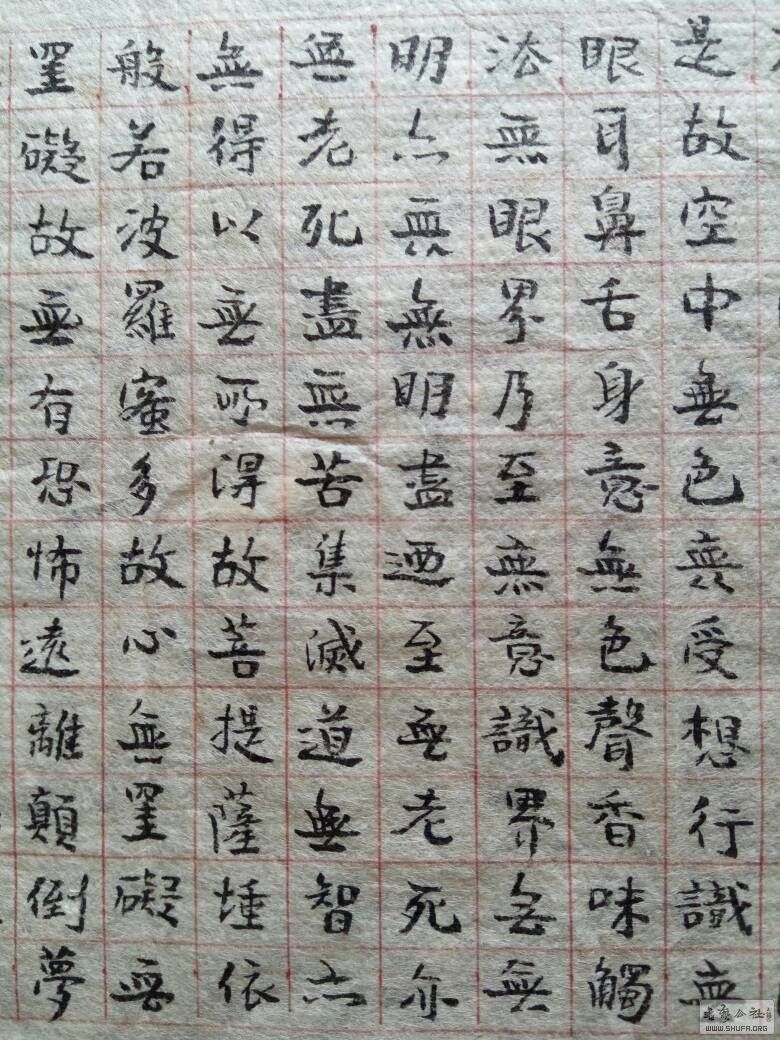 是故空中無色無受想行識無
眼耳鼻舌身意無色聲香味觸
法無眼界乃至無意識界無無
明亦無無明盡迺至無老死亦
無老死盡無苦集滅道無智亦
無得以無所得故菩提薩埵依
般若波羅蜜多故心無罣礙無
罣礙故無有恐怖遠離顛倒夢
WWW.SHUFA.ORG